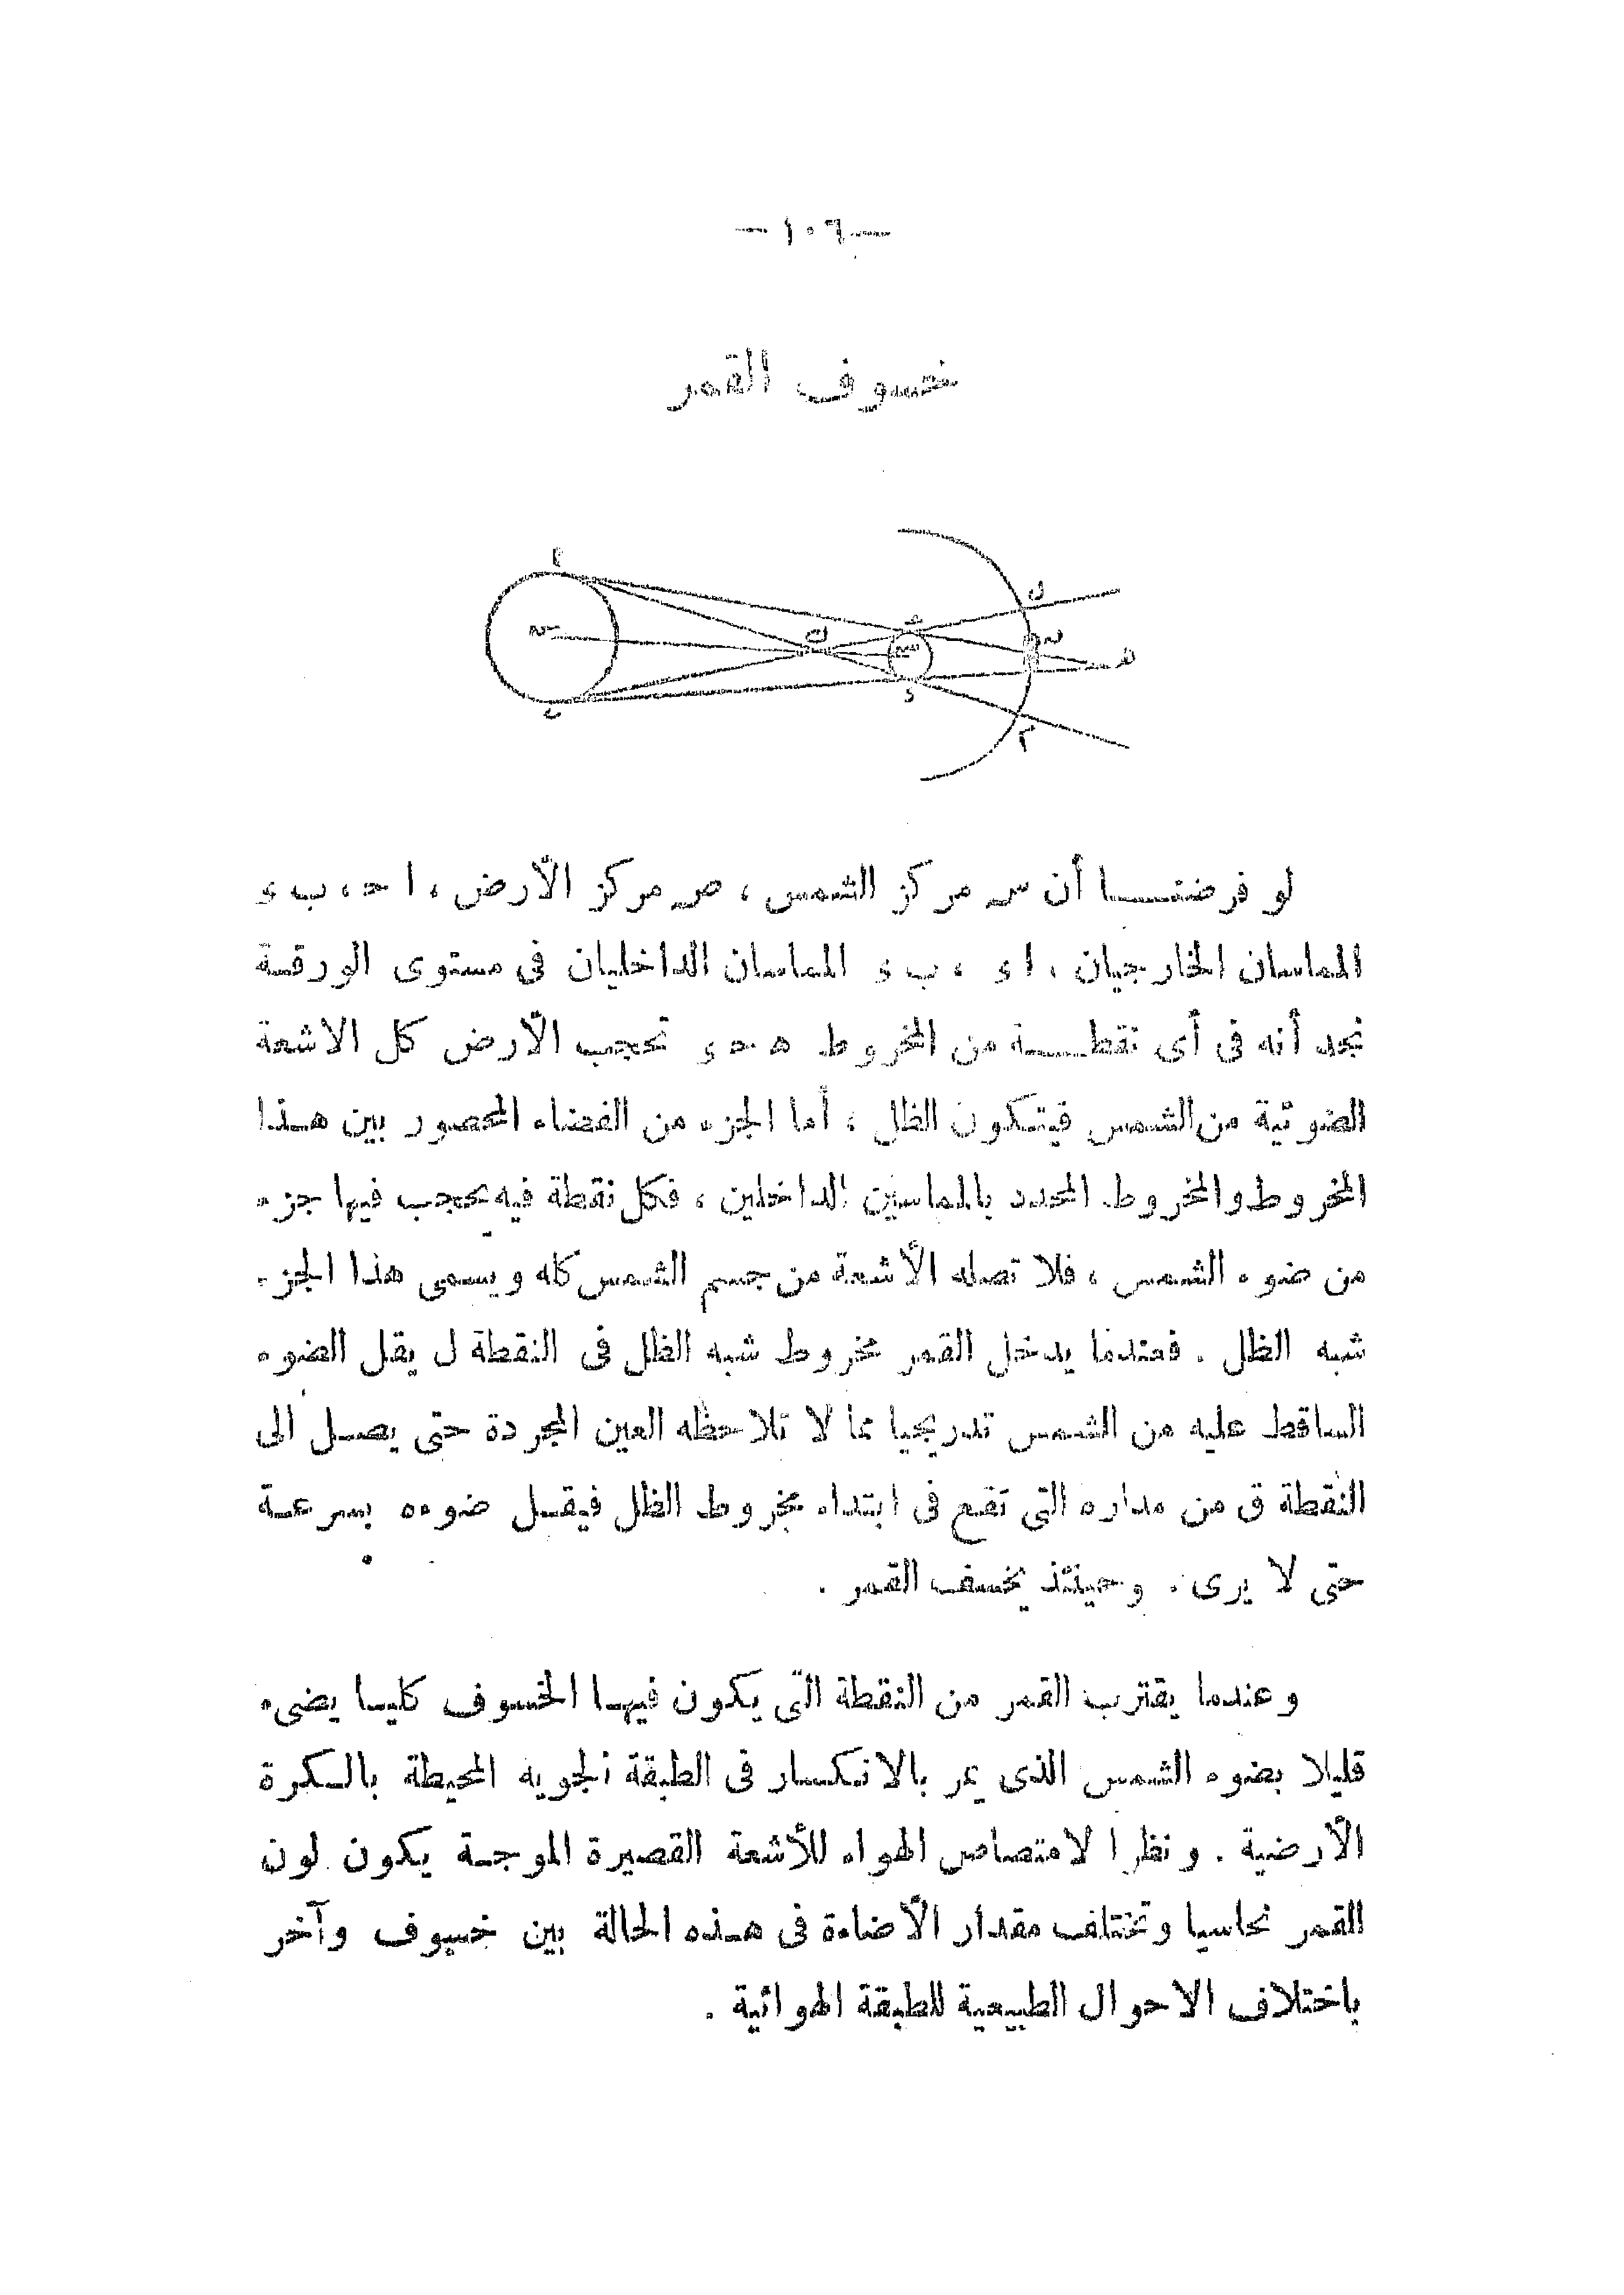 — ١٠٦ —
خسوف القمر
ا
س
ك
ح
ص
ل
ن
ه
ب
ء
م
لو فرضنا أن س مركز الشمس ، ص مركز الأرض ، ا ح ، ب ء
المماسان الخارجيان ، ا ء ، ب ء المماسان الداخليان فى مستوى الورقة
نجد أنه فى أى نقطة من المخروط ه ح ء تحجب الأرض كل الاشعة
الضوئية من الشمس فيتكون الظل ، أما الجزء من الفضاء المحصور بين هذا
المخروط والمخروط المحدد بالمماسين الداخلين ، فكل نقطة فيه يحجب فيها جزء
من ضوء الشمس ، فلا تصله الأشعة من جسم الشمس كله ويسمى هذا الجزء
شبه الظل . فعندما يدخل القمر مخروط شبه الظل فى النقطة ل يقل الضوء
الساقط عليه من الشمس تدريجيا مما لا تلاحظه العين المجردة حتى يصل الى
النقطة ق من مداره التى تقع فى ابتداء مخروط الظل فيقل ضوءه بسرعة
حتى لا يرى . وحينئذ يخسف القمر .
وعندما يقترب القمر من النقطة التى يكون فيها الخسوف كليا يضىء
قليلا بضوء الشمس الذى يمر بالانكسار فى الطبقة الجويه المحيطة بالكرة
الأرضية . ونظرا لامتصاص الهواء للأشعة القصيرة الموجة يكون لون
القمر نحاسيا وتختلف مقدار الأضاءة فى هذه الحالة بين خسوف وآخر
باختلاف الاحوال الطبيعية للطبقة الهوائية .